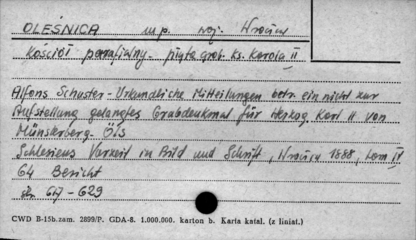 OLEŚNICA m.p. woj. Wrocław
Kościół parafialny - płyta grob. ks. Karola II
Alfons Schuster - Urkundliche Mitteilungen betr. ein nicht zur
Aufstellung gelangtes Grabdenkmal für Herzog Karl II von
Münsterberg - Öls
Schlesiens Vorzeit in Bild und Schrift, Wrocław 1888, tom IV
64 Bericht
617 - 629
CWD B-15b.zam. 2899/P. GDA-8. 1.000.000. karton b. Karta katal. (z liniat.)